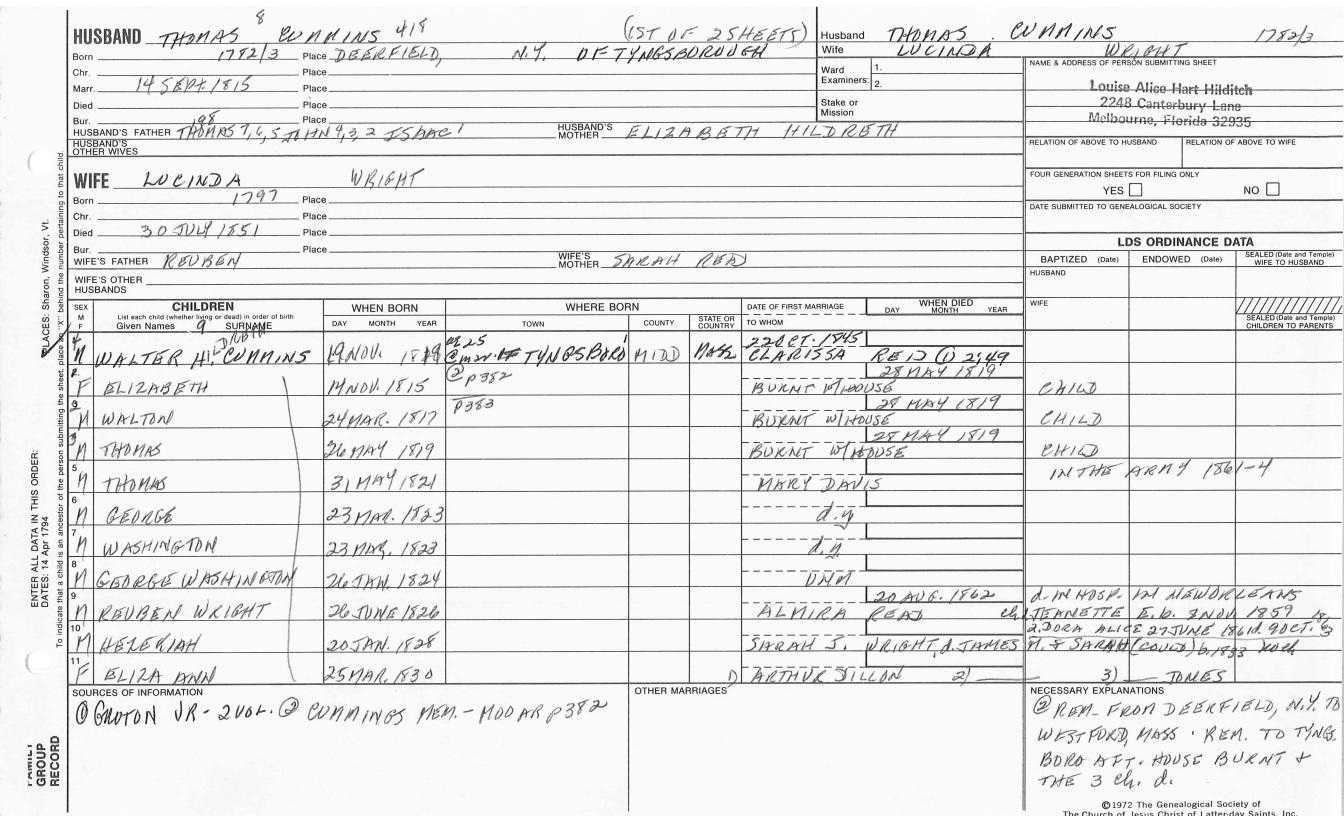 8
HUSBAND THOMAS CUMMINS 418 (1ST OF 2 SHEETS)
Born 1782/3 Place DEERFIELD, N.Y. OF TYNGSBOROUGH
Chr. Place
Marr. 14 SEPT. 1815 Place
Died Place
Bur. Place
HUSBAND'S FATHER THOMAS 7, 6, 5 JOHN 4, 3, 2 ISAAC 1 HUSBAND'S MOTHER ELIZABETH HILDRETH
HUSBAND'S OTHER WIVES
Husband THOMAS CUMMINS 1782/3
Wife LUCINDA WRIGHT
Ward Examiners: 1.
2.
Stake or Mission
NAME & ADDRESS OF PERSON SUBMITTING SHEET
Louise Alice Hart Hilditch
2248 Canterbury Lane
Melbourne, Florida 32935
RELATION OF ABOVE TO HUSBAND RELATION OF ABOVE TO WIFE
FOUR GENERATION SHEETS FOR FILING ONLY
YES NO
DATE SUBMITTED TO GENEALOGICAL SOCIETY
WIFE LUCINDA WRIGHT
Born 1797 Place
Chr. Place
Died 30 JULY 1851 Place
Bur. Place
WIFE'S FATHER REUBEN WIFE'S MOTHER SARAH READ
WIFE'S OTHER HUSBANDS
LDS ORDINANCE DATA
BAPTIZED (Date) ENDOWED (Date) SEALED (Date and Temple) WIFE TO HUSBAND
HUSBAND
WIFE
SEALED (Date and Temple) CHILDREN TO PARENTS
SEX M F
CHILDREN
List each child (whether living or dead) in order of birth
Given Names 9 SURNAME
WHEN BORN
DAY MONTH YEAR
WHERE BORN
TOWN COUNTY STATE OR COUNTRY
DATE OF FIRST MARRIAGE
TO WHOM
WHEN DIED
DAY MONTH YEAR
4 M WALTER HILDRETH CUMMINS 19 NOV. 1819 @ mar. OF TYNGSBORO' MIDD MASS 22 OCT. 1845 CLARISSA REID ① 2:49
2 F ELIZABETH 14 NOV. 1815 ② p382 28 MAY 1819 BURNT W/HOUSE CHILD
2 M WALTON 24 MAR. 1817 p383 28 MAY 1819 BURNT W/HOUSE CHILD
3 M THOMAS 26 MAY 1819 28 MAY 1819 BURNT W/HOUSE CHILD
5 M THOMAS 31 MAY 1821 MARY DAVIS IN THE ARMY 1861-4
6 M GEORGE 23 MAR. 1823 d.y
7 M WASHINGTON 23 MAR. 1823 d.y.
8 M GEORGE WASHINGTON 26 JAN. 1824 UNM
9 M REUBEN WRIGHT 26 JUNE 1826 20 AUG. 1862 ALMIRA READ d. IN HOSP. IN NEW ORLEANS
ch. 1 JEANETTE E. b. 3 NOV. 1859
2. DORA ALICE 27 JUNE 1861 d. 9 OCT.
10 M HEZEKIAH 20 JAN. 1828 SARAH J. WRIGHT, d. JAMES N. & SARAH (COULD) b. 1833
11 F ELIZA ANN 25 MAR. 1830 1) ARTHUR DILLON 2) 3) JONES
SOURCES OF INFORMATION
① GROTON VR - 2 VOL. ② CUMMINGS MEM. - MOOAR p382
OTHER MARRIAGES
NECESSARY EXPLANATIONS
② REM. FROM DEERFIELD, N.Y. TO
WESTFORD, MASS. REM. TO TYNGS
BORO AFT. HOUSE BURNT &
THE 3 ch. d.
©1972 The Genealogical Society of
The Church of Jesus Christ of Latter-day Saints, Inc.
ENTER ALL DATA IN THIS ORDER:
DATES: 14 Apr 1794
PLACES: Sharon, Windsor, Vt.
To indicate that a child is an ancestor of the person submitting the sheet, place an "X" behind the number pertaining to that child.
FAMILY GROUP RECORD